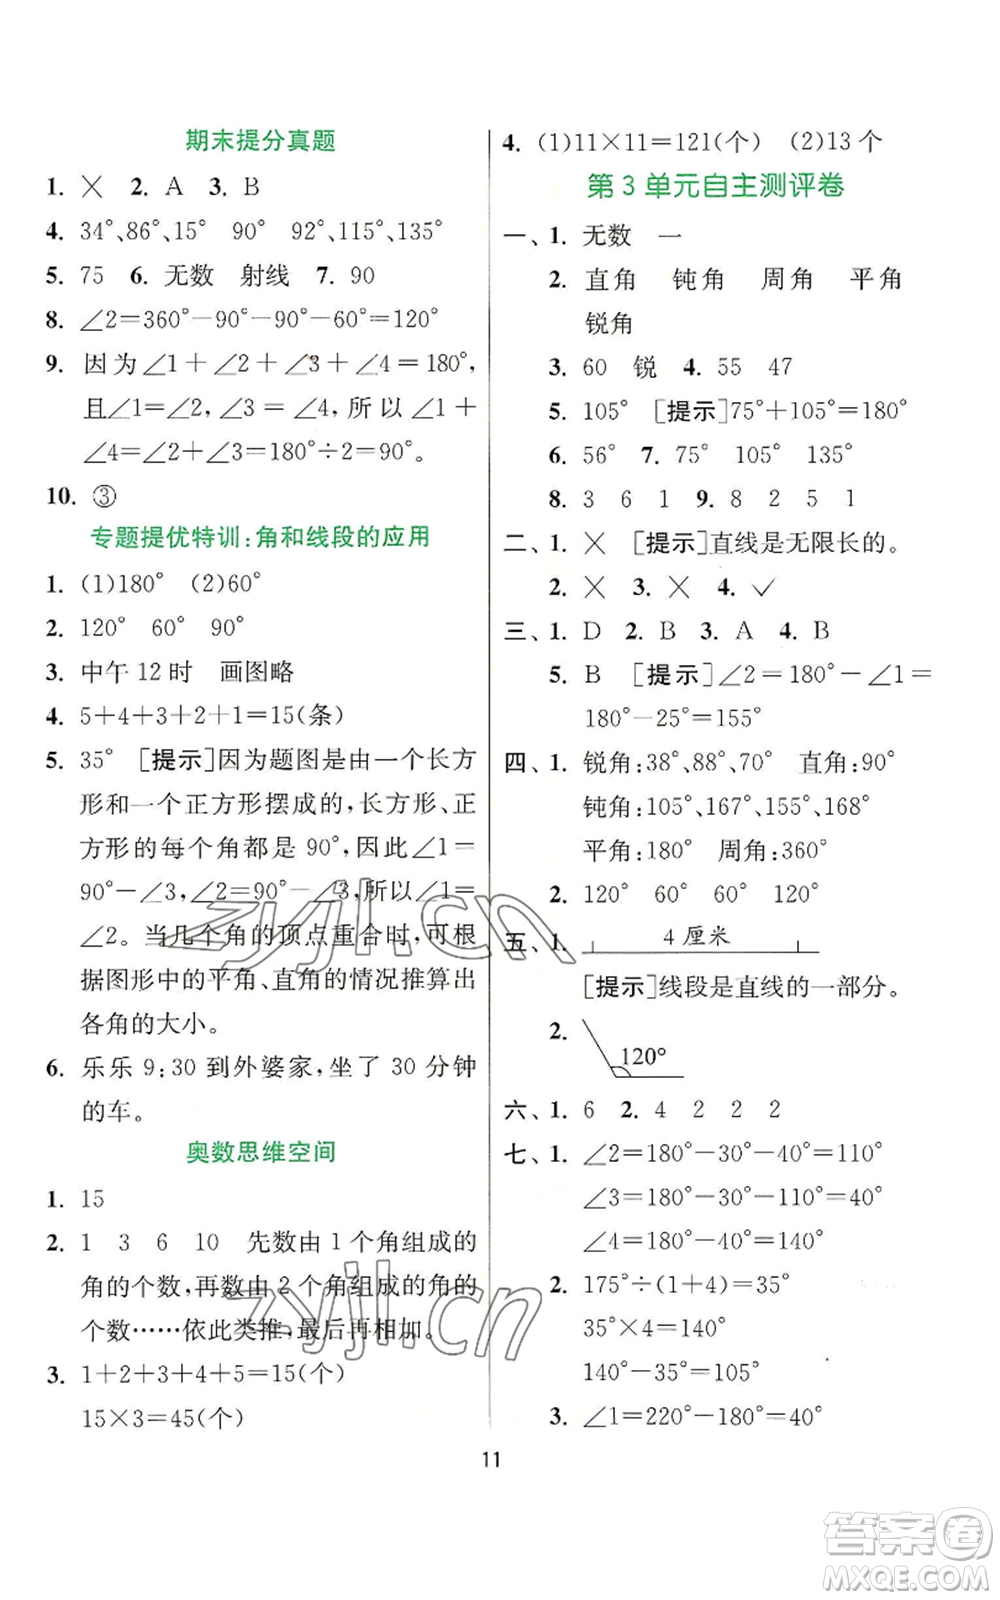 期末提分真题
1. ✕ 2. A 3. B
4. 34°、86°、15° 90° 92°、115°、135°
5. 75 6. 无数 射线 7. 90
8. ∠2=360°-90°-90°-60°=120°
9. 因为∠1+∠2+∠3+∠4=180°,
且∠1=∠2,∠3=∠4,所以∠1+
∠4=∠2+∠3=180°÷2=90°。
10. ③
专题提优特训:角和线段的应用
1. (1)180° (2)60°
2. 120° 60° 90°
3. 中午12时 画图略
4. 5+4+3+2+1=15(条)
5. 35° [提示]因为题图是由一个长方
形和一个正方形摆成的,长方形、正
方形的每个角都是90°,因此∠1=
90°-∠3,∠2=90°-∠3,所以∠1=
∠2。当几个角的顶点重合时,可根
据图形中的平角、直角的情况推算出
各角的大小。
6. 乐乐9:30到外婆家,坐了30分钟
的车。
奥数思维空间
1. 15
2. 1 3 6 10 先数由1个角组成的
角的个数,再数由2个角组成的角的
个数……依此类推,最后再相加。
3. 1+2+3+4+5=15(个)
15×3=45(个)
4. (1)11×11=121(个) (2)13个
第3单元自主测评卷
一、1. 无数 一
2. 直角 钝角 周角 平角
锐角
3. 60 锐 4. 55 47
5. 105° [提示]75°+105°=180°
6. 56° 7. 75° 105° 135°
8. 3 6 1 9. 8 2 5 1
二、1. ✕ [提示]直线是无限长的。
2. ✕ 3. ✕ 4. ✓
三、1. D 2. B 3. A 4. B
5. B [提示]∠2=180°-∠1=
180°-25°=155°
四、1. 锐角:38°、88°、70° 直角:90°
钝角:105°、167°、155°、168°
平角:180° 周角:360°
2. 120° 60° 60° 120°
五、1. 4厘米
[提示]线段是直线的一部分。
2. 120°
六、1. 6 2. 4 2 2 2
七、1. ∠2=180°-30°-40°=110°
∠3=180°-30°-110°=40°
∠4=180°-40°=140°
2. 175°÷(1+4)=35°
35°×4=140°
140°-35°=105°
3. ∠1=220°-180°=40°
11
zyjl.cn
zyjl.cn
答案卷
MXQE.COM